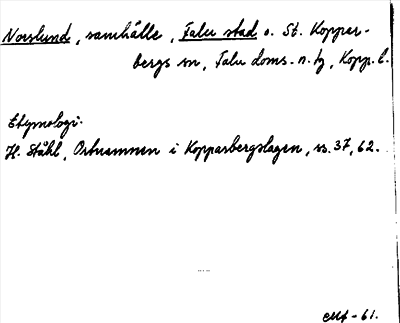 Norslund, samhälle, Falu stad o. St. Kopper-
bergs sn, Falu doms. n. tg, Kopp. l.
Etymologi:
H. Ståhl, Ortnamnen i Kopparbergslagen, ss. 37, 62.
-61.